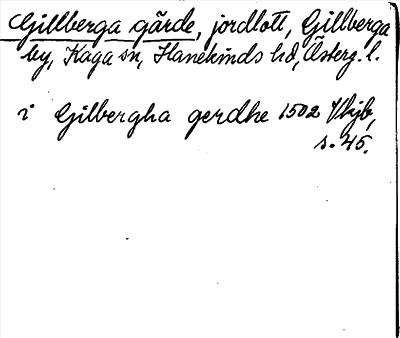 Gillberga gärde, jordlott, Gillberga
by, Kaga sn, Hanekinds hd, Österg. l.
i Gilbergha gerdhe 1502 Vkjb,
s. 45.